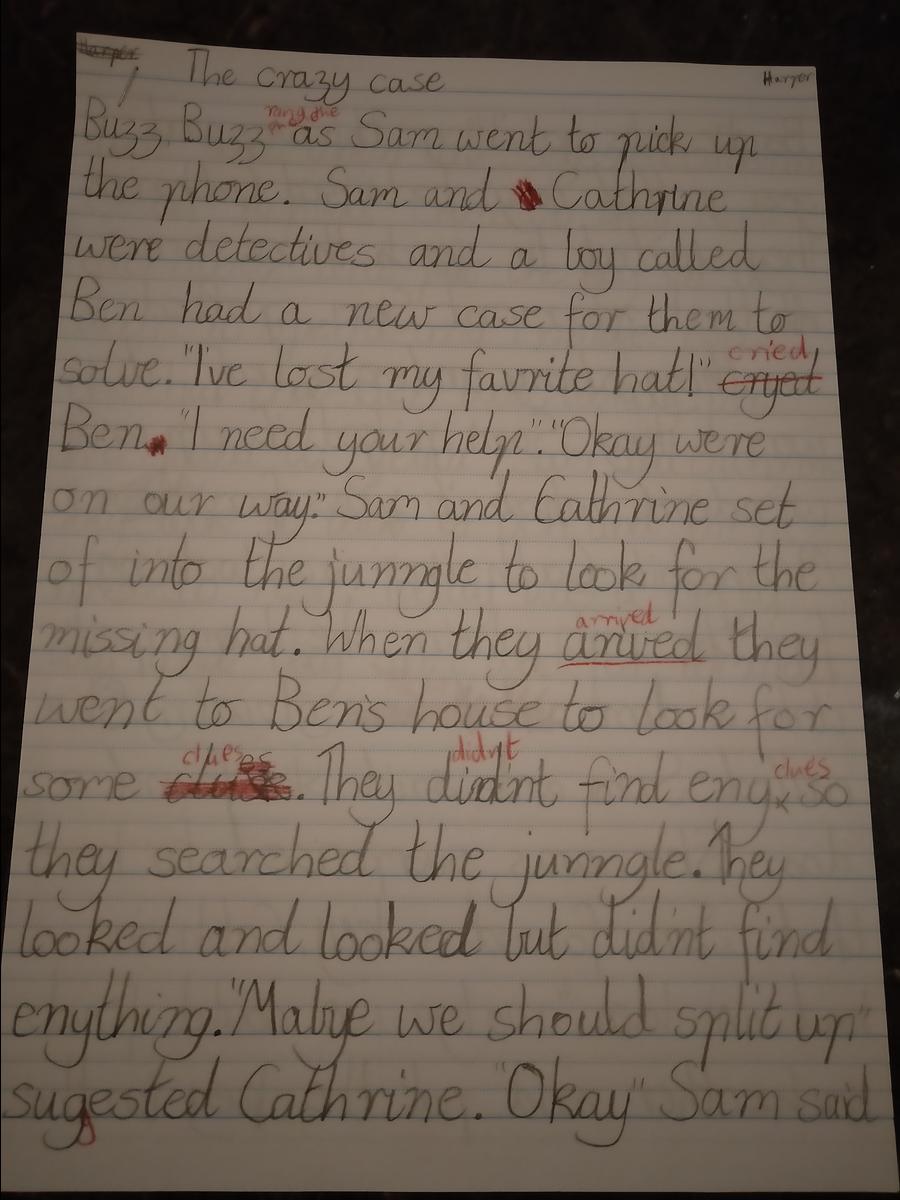 Harper The crazy case Harper
Buzz Buzz rang the as Sam went to pick up
the phone. Sam and Cathrine
were detectives and a boy called
Ben had a new case for them to
solve. "I've lost my favrite hat!" cryed cried
Ben. "I need your help". "Okay were
on our way". Sam and Cathrine set
of into the junngle to look for the
missing hat. When they arived arrived they
went to Ben's house to look for
some clues. They did'nt didn't find eny clues so
they searched the junngle. They
looked and looked but did'nt find
enything. "Mabye we should split up"
sugested Cathrine. "Okay" Sam said